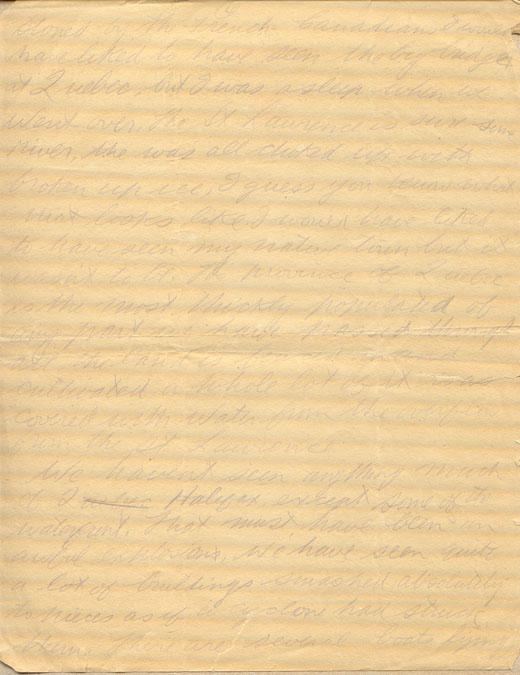 by the French Canadians I would
have liked to have seen the big bridge
at Quebec, but I was asleep when we
went over. The St Lawrence is sure some
river, she was all chuted up with
broken up ice, I guess you know what
that looks like I would have liked
to have seen my native town but it
wasent to be. The province of Quebec
is the most thickly populated of
any part we have passed through
all the land is and
cultivated a whole lot of it was
covered with water from the
from the St Lawrence
We havent seen anything much
of Halifax except some of the
waterfront. That must have been an
awful explosion, we have seen quite
a lot of buildings smashed absolutely
to pieces as if a cyclone had struck
them. There are several boats lying